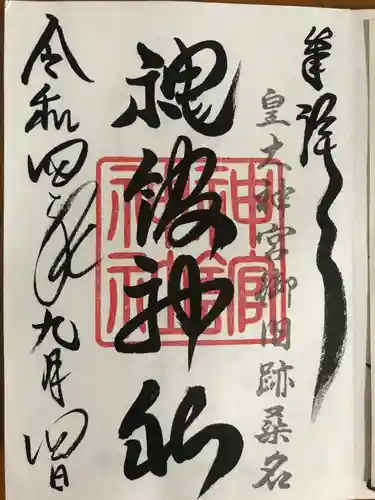 奉拝
皇大神宮御旧跡桑名
神館神社
神館
神社
令和四年九月四日